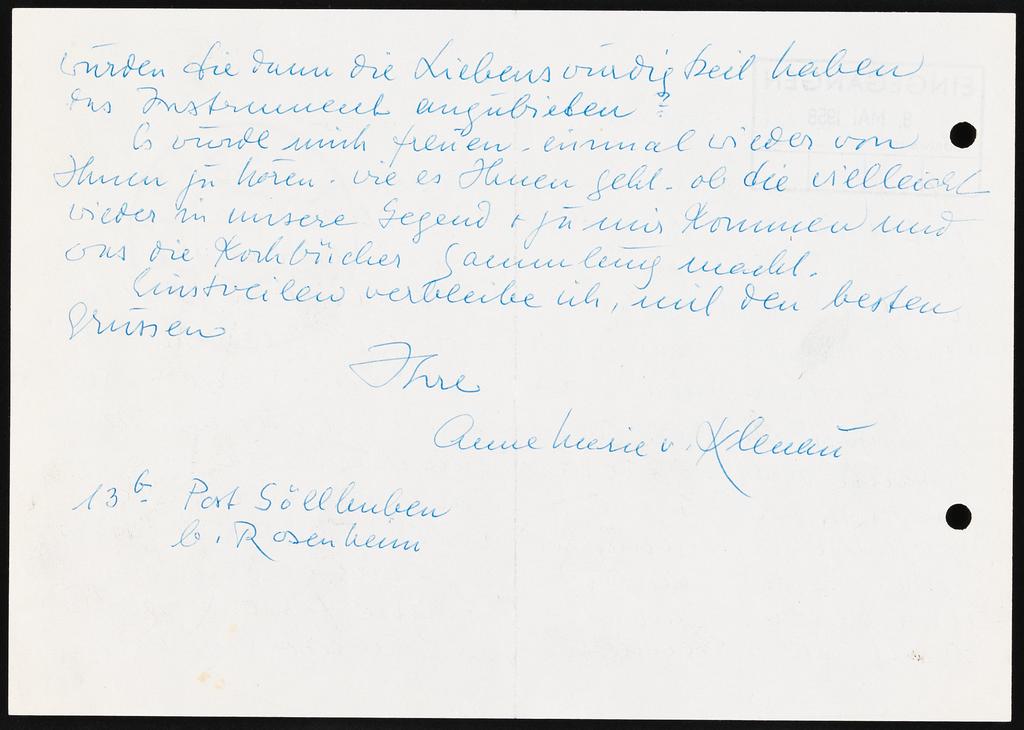 würden Sie dann die Liebenswürdigkeit haben
das Instrument anzubieten?
Es würde mich freuen - einmal wieder von
Ihnen zu hören - wie es Ihnen geht - ob Sie vielleicht
wieder in unsere Gegend + zu mir kommen und
was die Kochbücher Sammlung macht.
Einstweilen verbleibe ich, mit den besten
Grüssen
Ihre
Annemarie v. Klenau
13b - Post Söllhuben
b. Rosenheim
EINGEGANGEN
9. MAI 1958